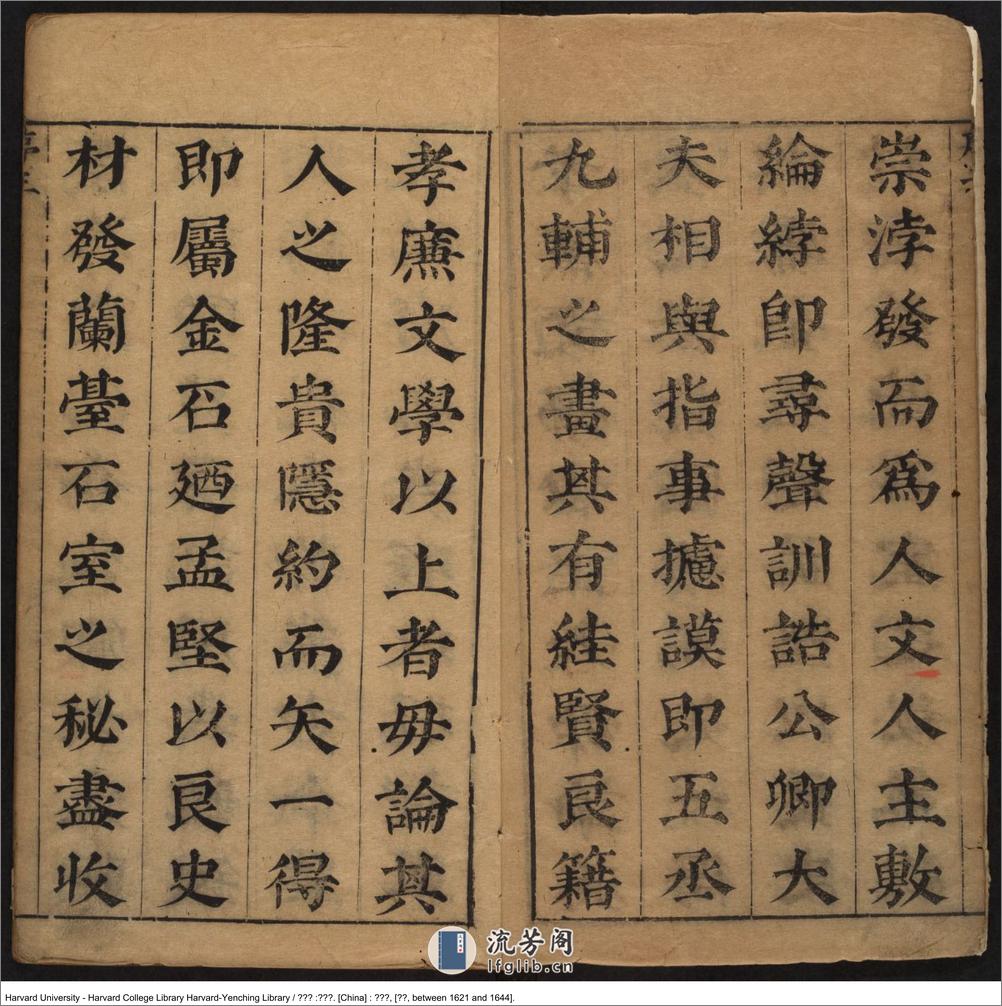 崇浡發而爲人文人主敷
綸綍卽尋聲訓誥公卿大
夫相與指事攄謨即五丞
九輔之畫其有絓賢良籍
孝廉文學以上者毋論其
人之隆貴隱約而矢一得
即屬金石廼孟堅以良史
材發蘭臺石室之秘盡收
流芳阁
lfglib.cn
Harvard University - Harvard College Library Harvard-Yenching Library / ??? :???. [China] : ???, [??, between 1621 and 1644].